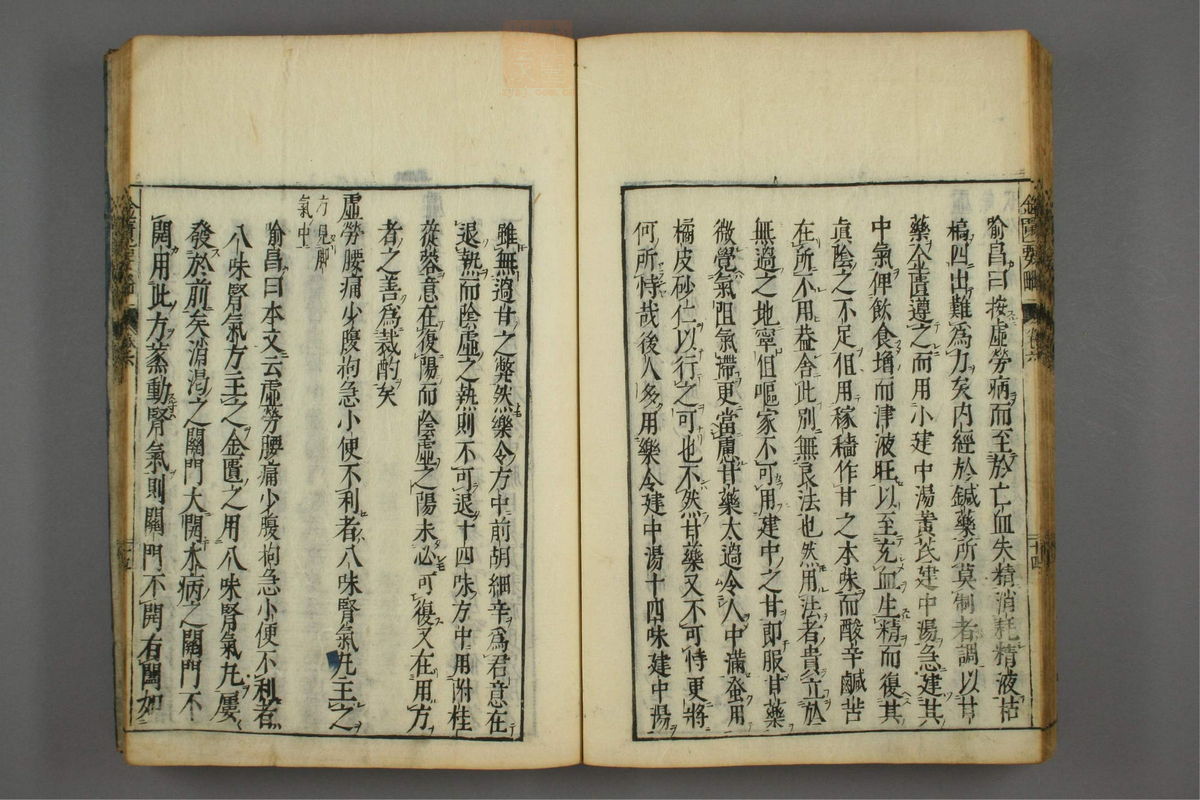 喻昌曰按虛勞病而至於亡血失精消耗精液枯
槁四出難為力矣内經於鍼藥所莫制者調以甘
藥金匱遵之而用小建中湯黃芪建中湯急建其
中氣俾飲食增而津液旺以至充血生精而復其
眞陰之不足但用稼穡作甘之本味而酸辛鹹苦
在所不用葢舍此別無良法也然用法者貴立於
無過之地寧但嘔家不可用建中之甘即服甘藥
微覺氣阻氣滯更當慮甘藥太過令人中滿蚤用
橘皮砂仁以行之可也不然甘藥又不可恃更將
何所恃哉後人多用樂令建中湯十四味建中湯
雖無過甘之弊然樂令方中前胡細辛為君意在
退熱而陰虛之熱則不可退十四味方中用附桂
蓯蓉意在復陽而陰虛之陽未必可復又在用方
者之善為裁酌矣
虛勞腰痛少腹拘急小便不利者八味腎氣丸主之
方見脚
氣中
喻昌曰本文云虛勞腰痛少腹拘急小便不利者
八味腎氣方主之金匱之用八味腎氣丸屢
發於前矣消渴之關門大開水病之關門不
開用此方蒸動腎氣則關門不開有闔如